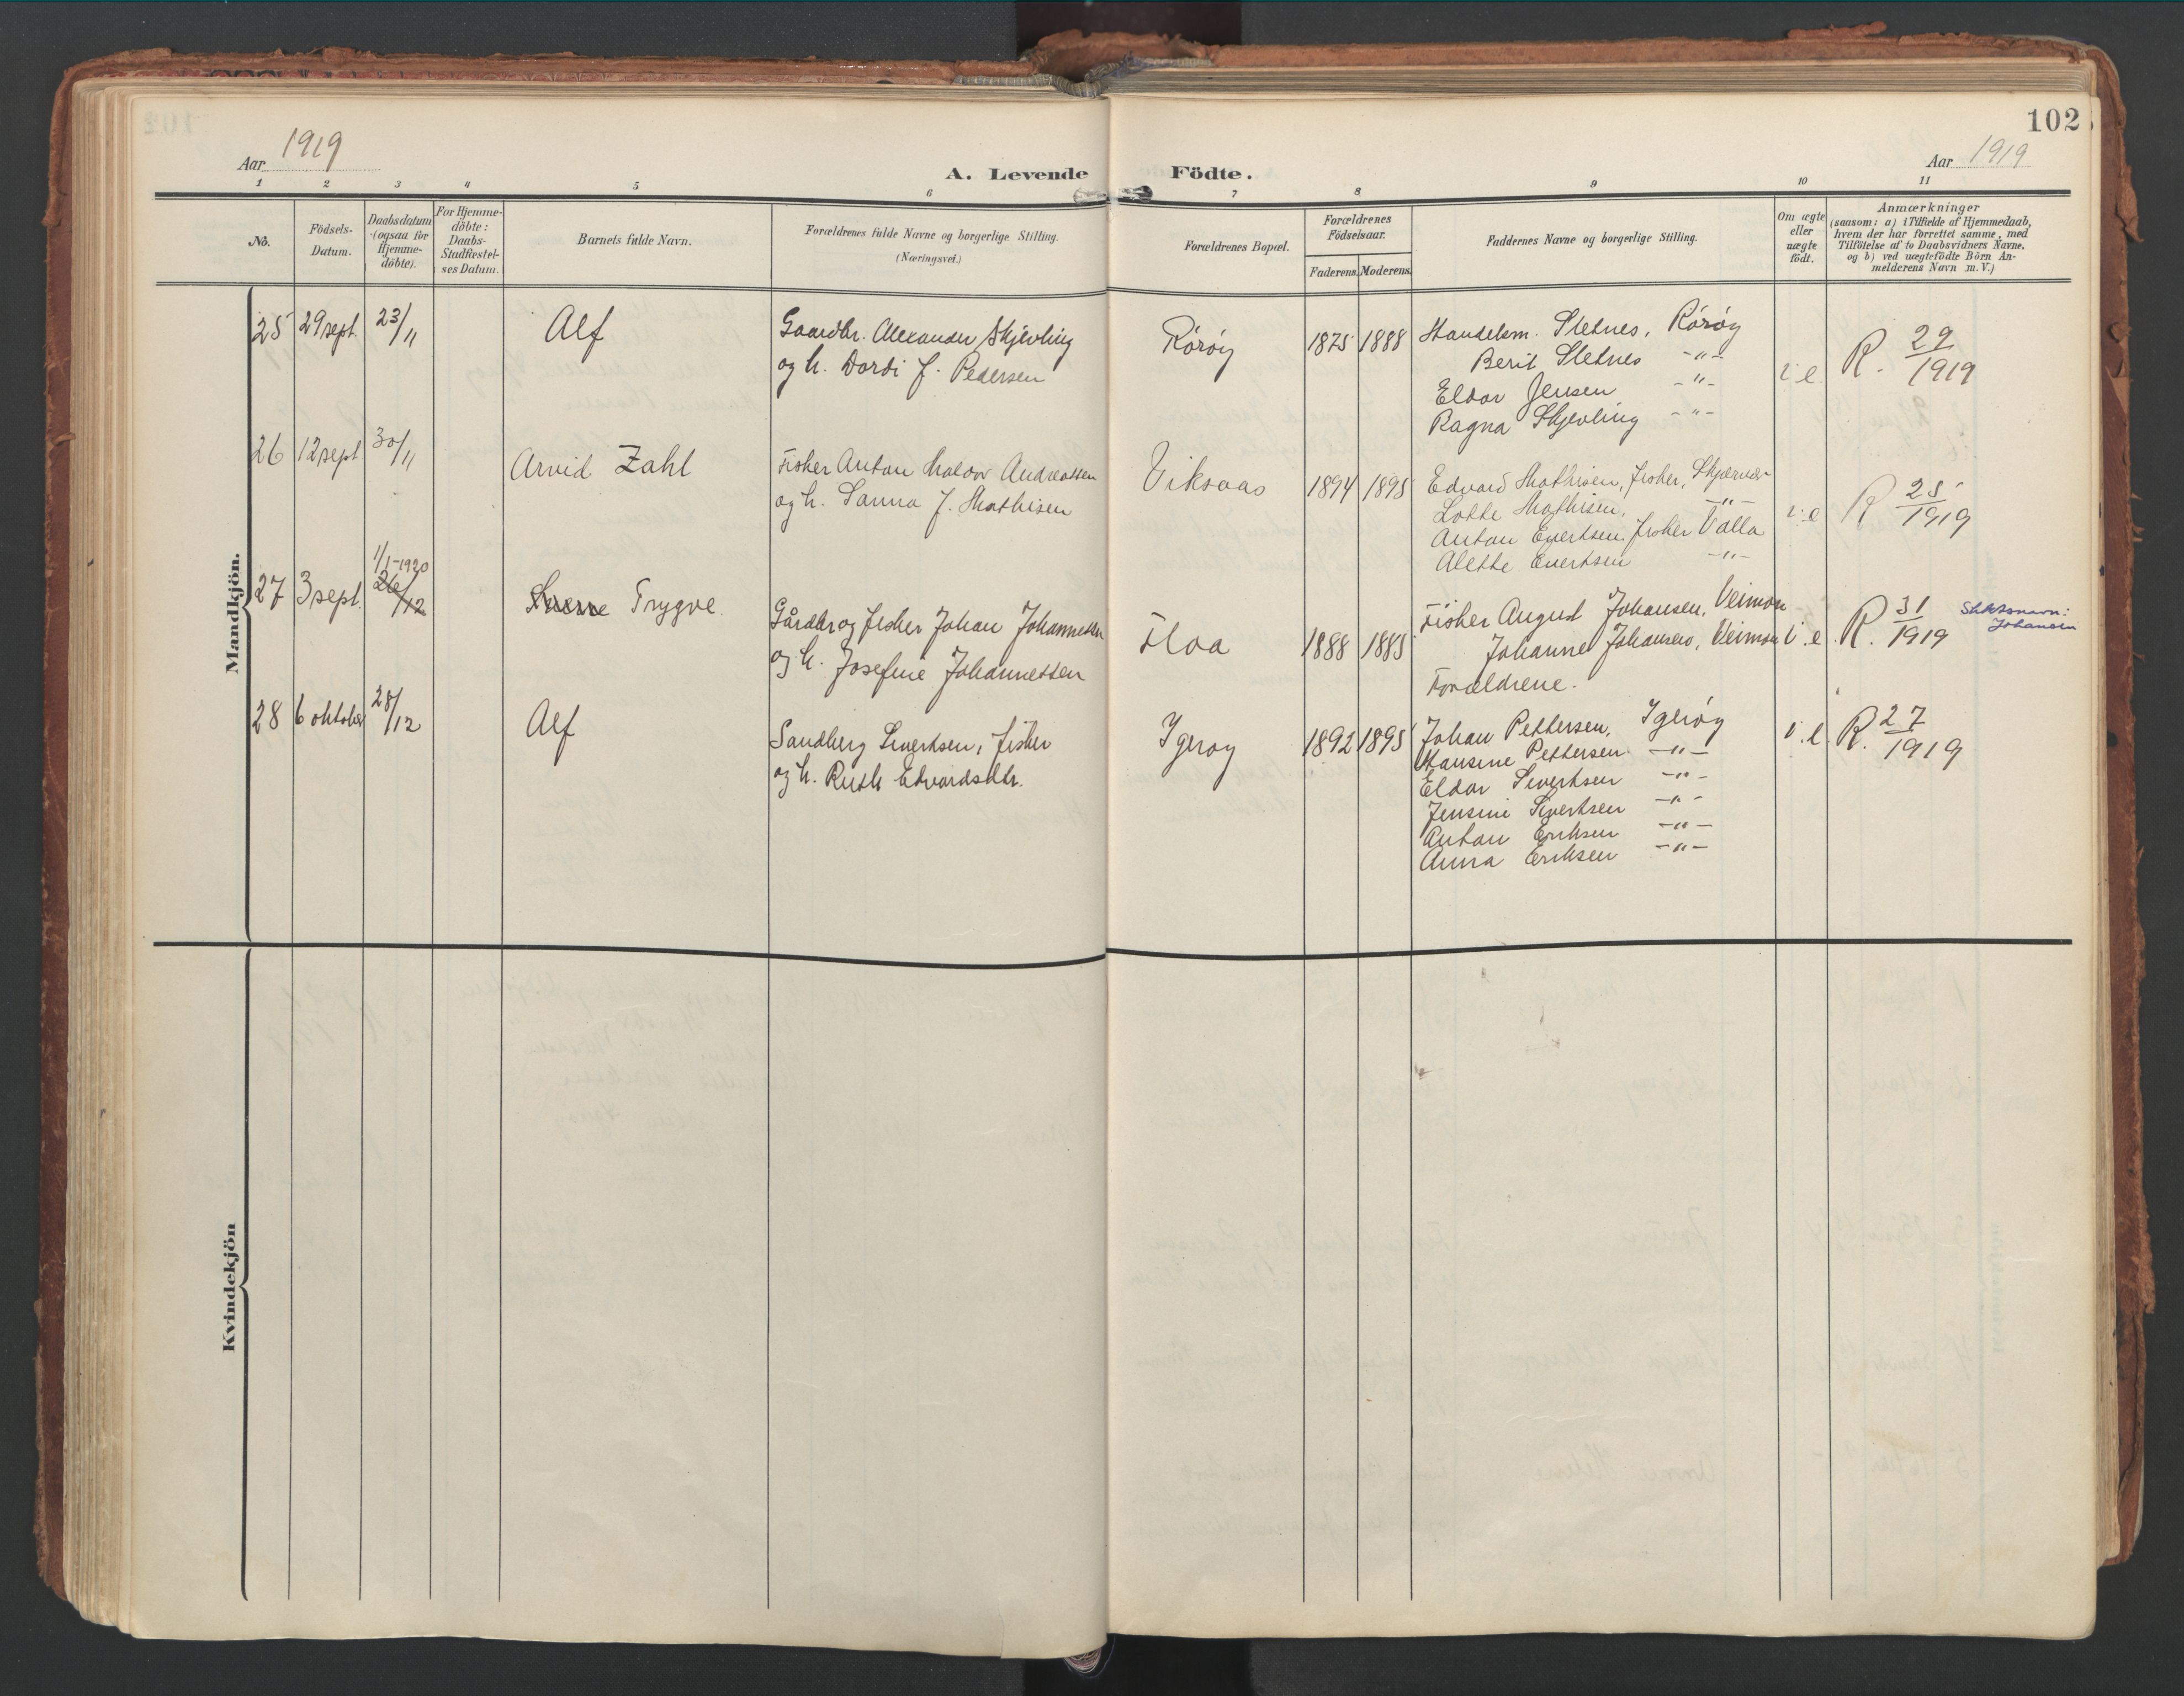 102
Aar 1919
Aar 1919
A. Levende Födte.
1 2 3 4 5 6 7 8 9 10 11
No.
Födsels-
Datum.
Daabsdatum
(ogsaa for
Hjemme-
döbte).
For Hjemme-
döbte:
Daabs-
Stadfæstel-
ses Datum.
Barnets fulde Navn.
Forældrenes fulde Navne og borgerlige Stilling.
(Næringsvei.)
Forældrenes Bopæl.
Forældrenes
Födselsaar.
Faderens. Moderens.
Faddernes Navne og borgerlige Stilling.
Om ægte
eller
uægte
födt.
Anmærkninger
(saasom: a) i Tilfælde af Hjemmedaab,
hvem der har forrettet samme, med
Tilföielse af to Daabsvidners Navne,
og b) ved uægtefödte Börn An-
melderens Navn m. V.)
Mandkjön.
25 29 sept. 23/11 Alf
Gaardbr. Alexander Skjevling
og h. Dordi f. Pedersen
Rörøy 1875 1888
Handelsm. Sletnes, Rörøy
Berit Sletnes -"-
Eldor Jensen -"-
Ragna Skjevling -"-
i e. R. 29/1919
26 12 sept 30/11 Arvid Zahl
Fisker Anton Halvor Andreassen
og h. Sanna f. Mathisen
Viksaas 1894 1895
Edvard Mathisen, fisker, Skjærvær
Lotte Mathisen, -"-
Anton Evertsen, fisker Valla
Alette Evertsen -"-
i e R 25/1919
27 3 sept. 1/1-1920
26/12
Sverre Trygve.
Gårdbr og fisker Johan Johannessen
og h. Josefine Johannessen
Floa 1888 1885
Fisker August Johansen, Veimon
Johanne Johansen, Veimon
Forældrene.
i. e. R. 31/1919
Slektsnavn:
Johansen
28 6 oktober 28/12 Alf
Sandberg Sivertsen, fisker
og h. Ruth Edvardsdtr.
Igerøy 1892 1895
Johan Pettersen, Igerøy
Hansine Pettersen -"-
Eldor Sivertsen -"-
Jensine Sivertsen -"-
Anton Eriksen -"-
Anna Eriksen -"-
i. e. R. 27/1919
Kvindekjön